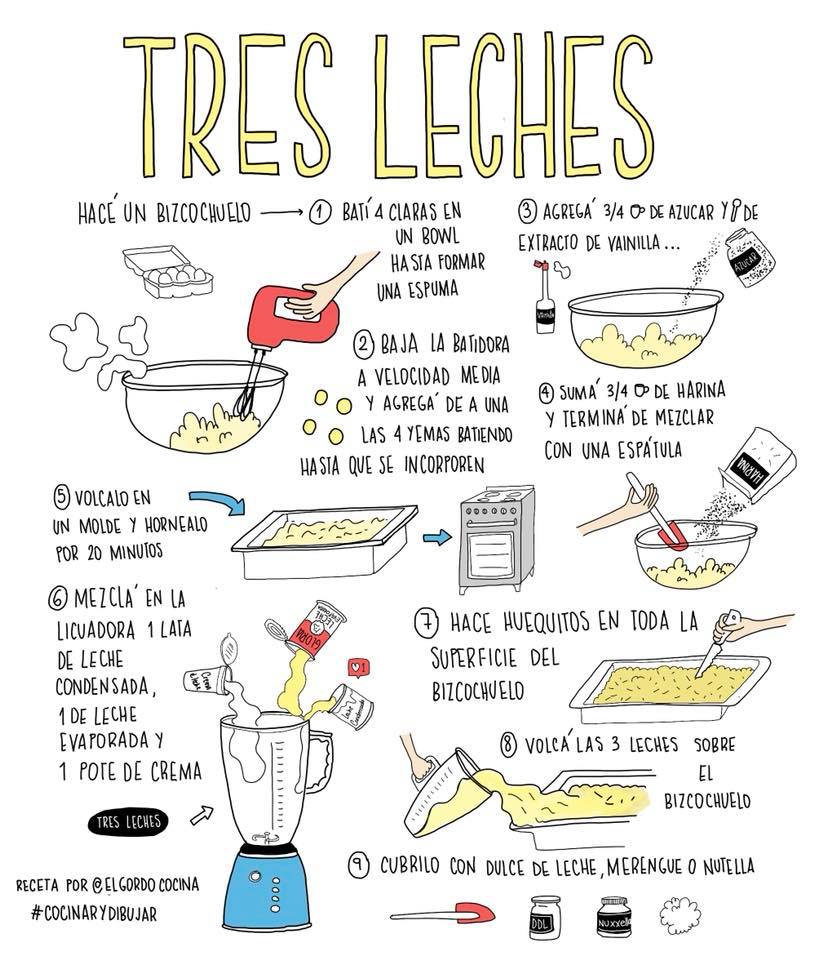 TRES LECHES
HACÉ UN BIZCOCHUELO
① BATÍ 4 CLARAS EN
UN BOWL
HASTA FORMAR
UNA ESPUMA
② BAJA LA BATIDORA
A VELOCIDAD MEDIA
Y AGREGÁ DE A UNA
LAS 4 YEMAS BATIENDO
HASTA QUE SE INCORPOREN
③ AGREGÁ 3/4 DE AZUCAR Y DE
EXTRACTO DE VAINILLA...
AZUCAR
Vainilla
④ SUMÁ 3/4 DE HARINA
Y TERMINÁ DE MEZCLAR
CON UNA ESPÁTULA
HARINA
⑤ VOLCALO EN
UN MOLDE Y HORNEALO
POR 20 MINUTOS
⑥ MEZCLÁ EN LA
LICUADORA 1 LATA
DE LECHE
CONDENSADA,
1 DE LECHE
EVAPORADA Y
1 POTE DE CREMA
LECHE
EVAPORADA
GLORIA
Crema
Leche
Condensada
1
TRES LECHES
⑦ HACE HUEQUITOS EN TODA LA
SUPERFICIE DEL
BIZCOCHUELO
⑧ VOLCÁ LAS 3 LECHES SOBRE
EL
BIZCOCHUELO
⑨ CUBRILO CON DULCE DE LECHE, MERENGUE O NUTELLA
DDL
NUXXELLA
RECETA POR @ELGORDOCOCINA
#COCINARYDIBUJAR